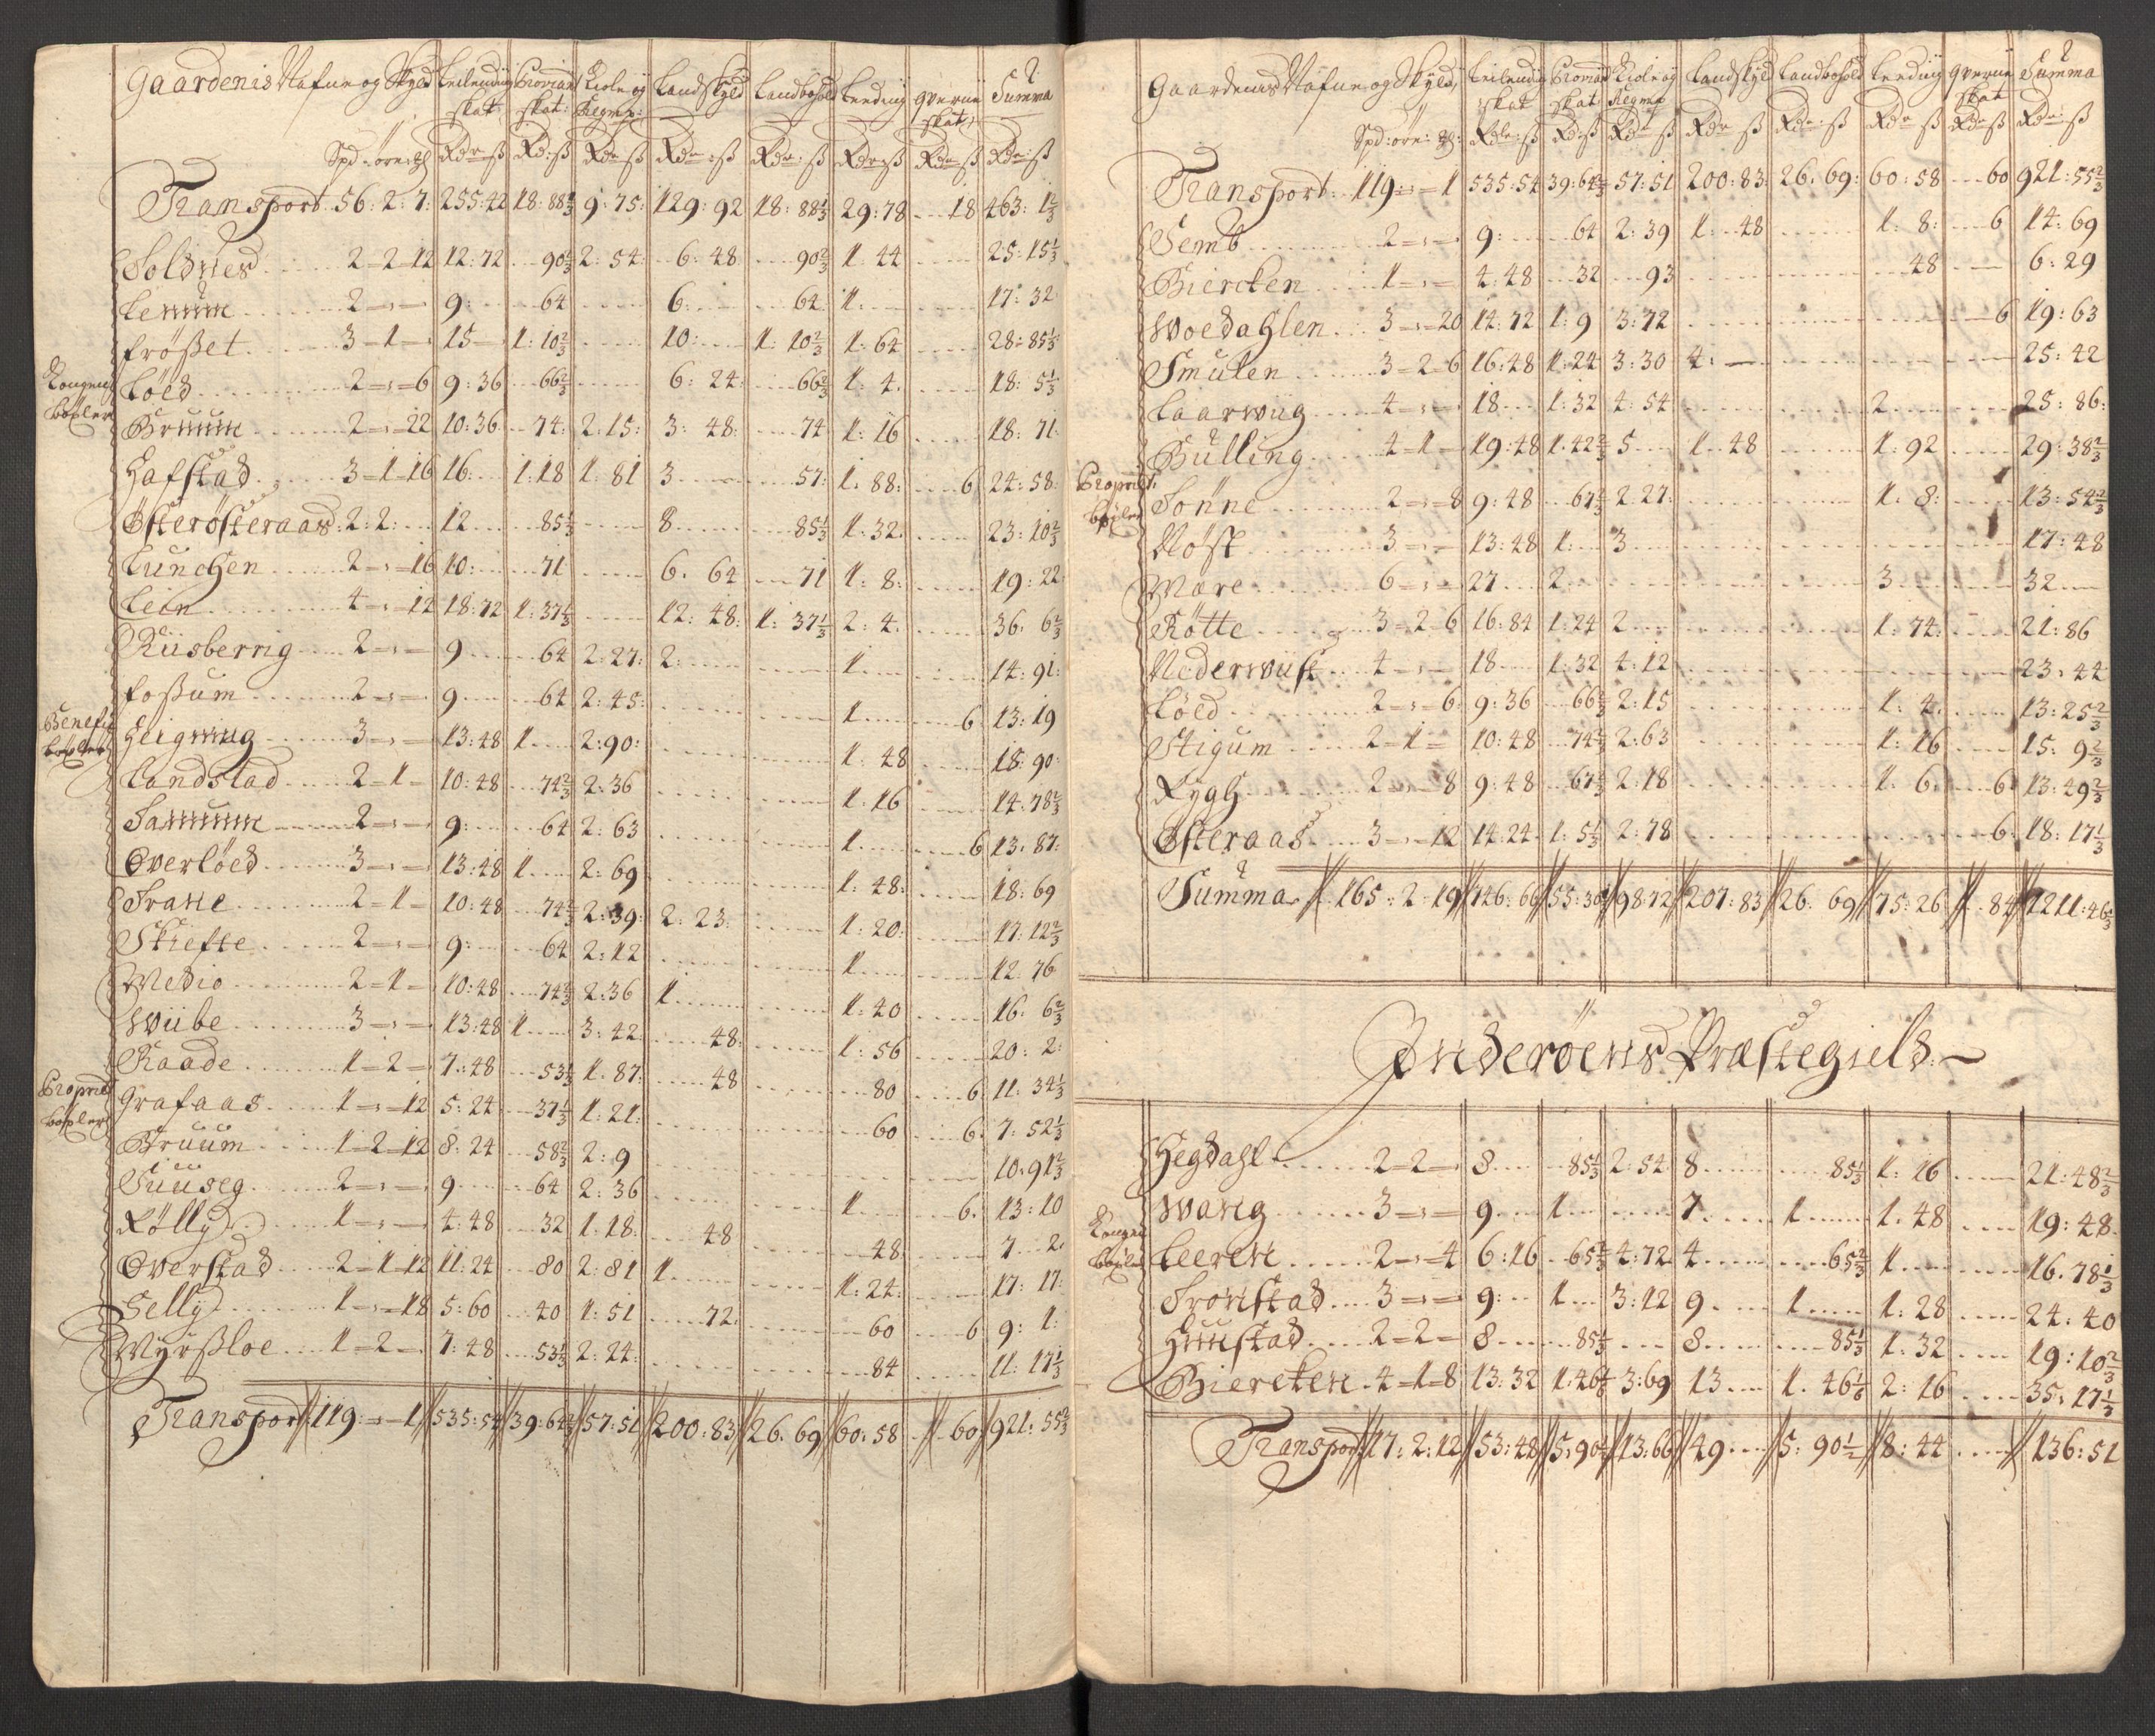 Gaardenis Nafne og Skyld Leilending skat Proviant skat: Kiole og Regmp: Landskyld Landbohold Leeding qverne skat, Summa
Spd: öre: ℳ Rdr ß Rd: ß Rdr ß Rdr: ß Rdr: ß Rdr ß Rdr ß Rdr: ß
Transport 56: 2: 7: 255:42 18: 88 1/3 9: 75: 129: 92 18: 88 1/3 29: 78 18 463: 1 2/3
Soldnes 2 - 2 - 12 12: 72 90 2/3 2: 54: 6: 48 90 2/3 1: 44 25: 15 1/3
Lenum 2 - " - 9: 64 6: 64 1: 17: 32
Frößet 3 - 1 - 15 1: 10 2/3 10: 1: 10 2/3 1: 64 28: 85 1/3
Kongens böxler
Löed 2 - " - 6 9: 36 66 2/3 6: 24: 66 2/3 1: 4. 18: 5 1/3
Bruum 2 - " - 22 10: 36 74: 2: 15: 3: 48: 74 1: 16 18: 71
Hafstad 3 - 1 - 16 16: 1: 18 1: 81 3 57: 1: 88: 6 24: 58
Österösteraas 2: 2: 12 85 1/3 8 85 1/3 1: 32. 23: 10 2/3
Lunchen 2 - " - 16 10: 71 6: 64 71 1: 8: 19: 22
Lein 4 - " - 12 18: 72 1: 37 1/3 12: 48: 1: 37 1/3 2: 4. 36: 6 2/3
Riisberrig 2 - " - 9 64 2: 27: 2: 1. 14: 91:
Foßum 2 - " - 9 64 2: 45: 1. 6 13: 19
Benefic: böxler
Heigning 3 - " - 13: 48 1 2: 90: 1: 48 18: 90
Landstad 2 - 1 - 10: 48 74 2/3 2: 36 1: 16 14: 78 2/3
Samuum 2 - " - 9: 64 2: 63 1. 6 13: 87:
Overlöed 3 - " - 13: 48 1 2: 69 1: 48: 18: 69
Frane 2 - 1 - 10: 48 74 2/3 2: 39: 2: 23. 1: 20: 17: 12 2/3
Skiefte 2 - " - 9: 64 2: 12 1. 12: 76
Medio 2 - 1 - 10: 48 74 2/3 2: 36 1. 1: 40 16: 6 2/3
Wiibe 3 - " - 13: 48 1 3: 42 48: 1: 56 20: 2:
Raade 1 - 2 - 7: 48 53 1/3 1: 87: 48 80 6 11: 34 1/3
Propriet: böxler
Grafaas 1 - " - 12 5: 24 37 1/3 1: 21: 60 6. 7: 52 1/3
Bruum 1 - 2 - 12 8: 24 58 2/3 2: 9 10: 91 2/3
Suuseg 2 - " - 9 64 2: 36 1. 6. 13: 10
Rölly 1 - " - 4: 48 32 1: 18: 48 48 7: 2.
Overstad 2 - 1 - 12 11: 24 80 2: 81 1. 1: 24: 17: 17:
Selly 1 - " - 18 5: 60 40 1: 51 72: 60 6 9: 1:
Myrßloe 1 - 2 - 7: 48 53 1/3 2: 24: 84 11: 17 1/3
Transport 119: " - 1 535: 54 39: 64 2/3 57: 51 200: 83 26: 69 60: 58 60 921: 55 2/3
Gaardenis Nafne og Skyld, Leilending skat Proviant skat Kiole og Regmp Landskyld Landbohold Leeding qverne skat Summa
Spd: öre: ℳ: Rdr: ß Rd: ß Rdr ß Rdr ß Rdr: ß Rdr ß Rdr ß Rdr: ß
Transport 119: " - 1 535: 54 39: 64 2/3 57: 51 200: 83: 26: 69: 60: 58 60 921: 55 2/3
Semb 2 - " - 9: 64 2: 39 1: 48 1: 8: 6 14: 69
Biercken 1 - " - 4: 48 32 93 48 6: 29
Woedahlen 3 - " - 20 14: 72 1: 9 3: 72 6 19: 63
Smulen 3 - 2 - 6 16: 48 1: 24 3: 30 4: 25: 42
Laarwiig 4 - " - 18 1: 32 4: 54 2 25: 86:
Bulling 4 - 1 - 19: 48 1: 42 2/3 5 1: 48 1: 92 29: 38 2/3
Propriet: böxler
Sonne 2 - " - 8 9: 48 67 2/3 2: 27: 1: 8: 13: 54 2/3
Nöst 3 - " - 13: 48 1: 3 17: 48
Mare 6 - " - 27 2 3 32
Rötte 3 - 2 - 6 16: 84 1: 24 2 1: 74: 21: 86
Nederwüst 4 - " - 18 1: 32 4: 12 23: 44
Löed 2 - " - 6. 9: 36 66 2/3 2: 15 1: 4. 13: 25 2/3
Stigum 2 - 1 - 10: 48 74 2/3 2: 63 1: 16 15: 9 2/3
Rygh 2 - " - 8 9: 48 67 2/3 2: 18 1: 6. 6. 13: 49 2/3
Österaas 3 - " - 12 14: 24 1: 5 1/3 2: 78 6. 18: 17 1/3
Summa 165: 2: 19 746: 66 55: 30 98: 72 207: 83 26: 69 75: 26 84 1211: 46 2/3
Inderöens Præstegield:
Hegdahl 2 - 2 - 8 85 1/3 2: 54 8 85 1/3 1: 16 21: 48 2/3
Wang 3 - " - 9 1 7 1 1: 48 19: 48
Kongens böxler
Leeren 2 - " - 4 6: 16 65 2/3 4: 72 4 65 2/3 1 16: 78 1/3
Tronstad 3 - " - 9: 1 3: 12 9. 1 1: 28 24: 40
Huustad 2 - 2 - 8 85 1/3 8 85 1/3 1: 32 19: 10 2/3
Biercken 4 - 1 - 8 13: 32 1: 46 1/6 3: 69 13 1: 46 1/6 2: 16 35: 17 1/3
Transport 17: 2: 12 53: 48 5: 90 1/2 13: 66 49 5: 90 1/2 8: 44 136: 51